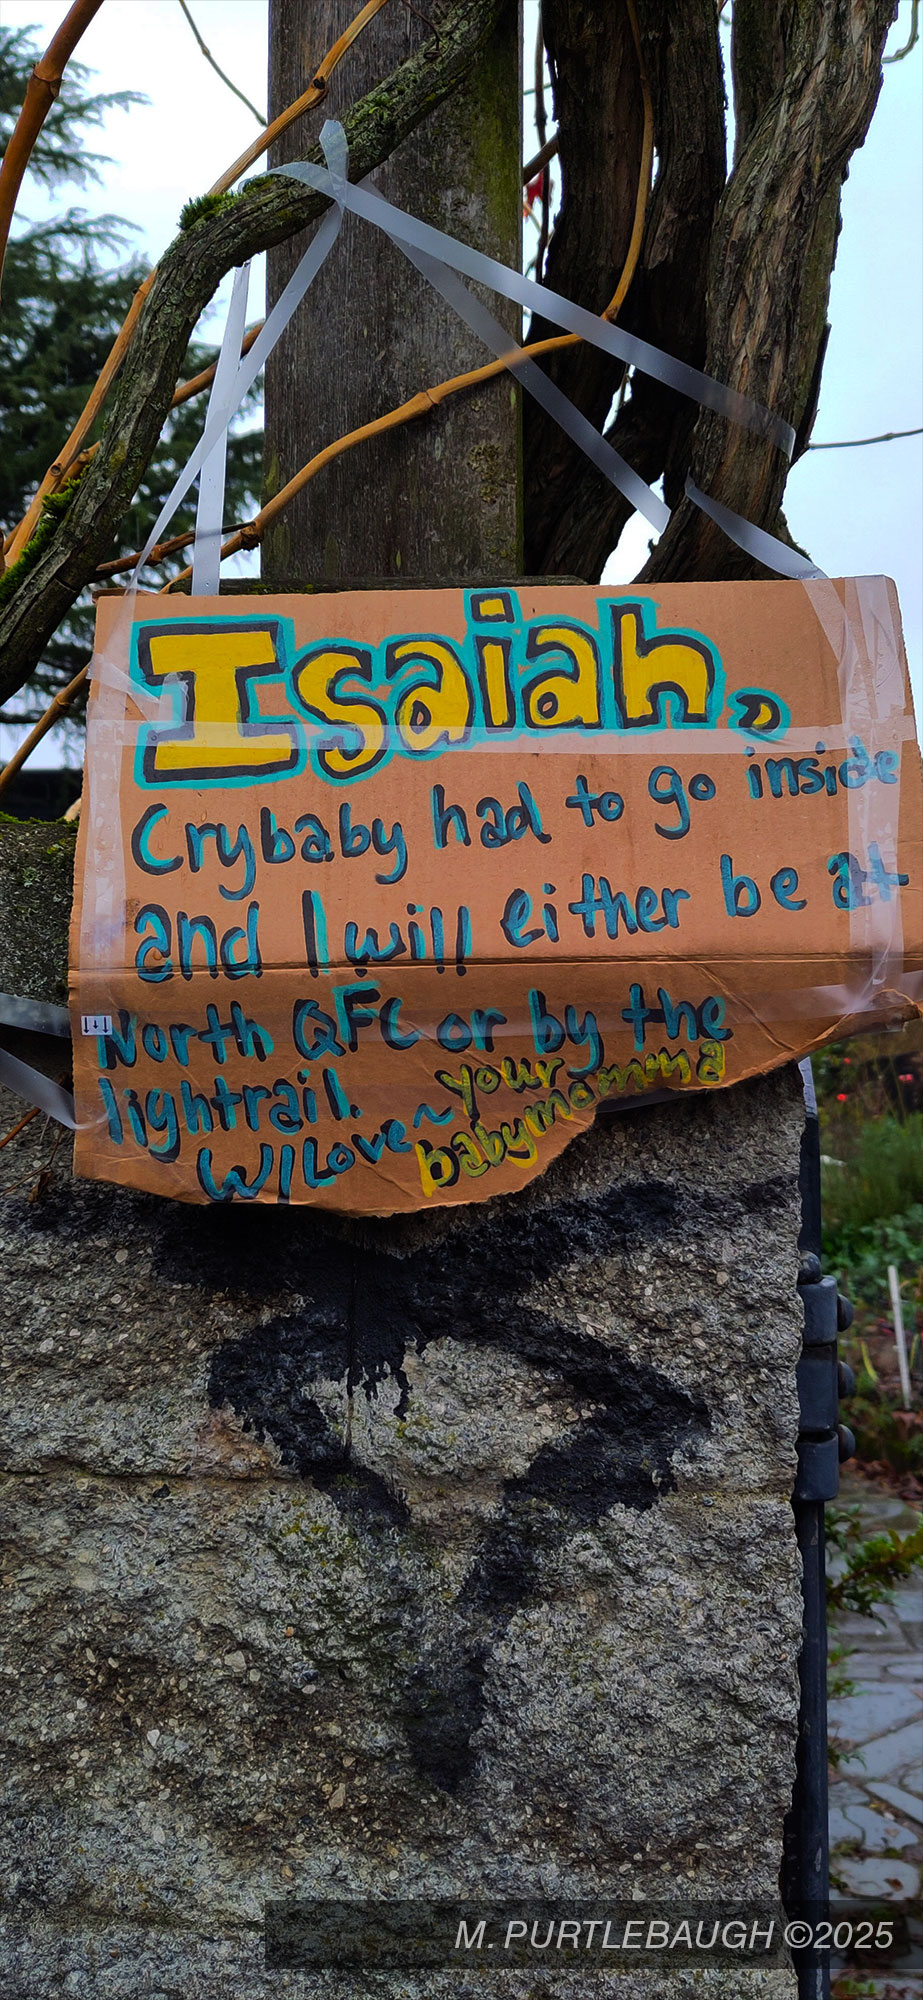 Isaiah,
Crybaby had to go inside
and I will either be at
North QFC or by the
lightrail.
W/Love~ your
babymomma
M. PURTLEBAUGH ©2025